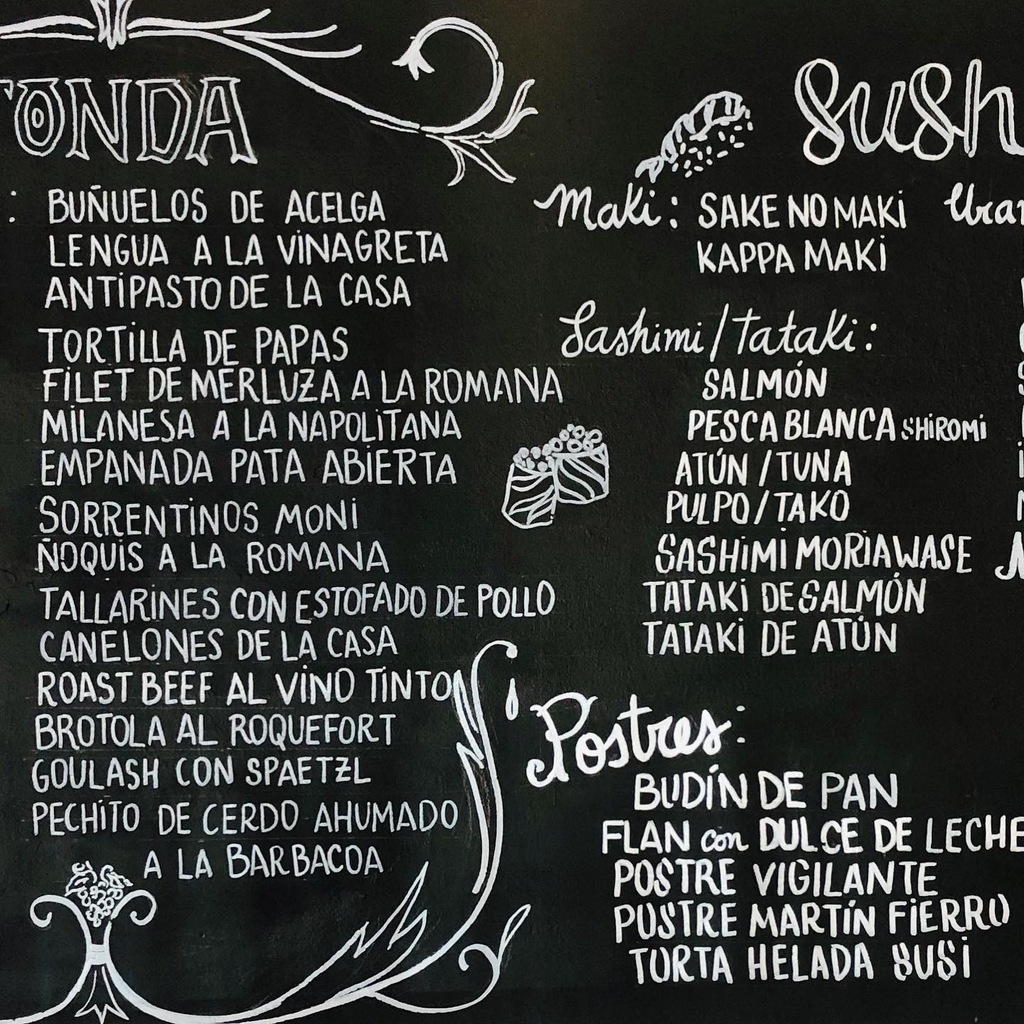 ONDA
: BUÑUELOS DE ACELGA
LENGUA A LA VINAGRETA
ANTIPASTO DE LA CASA
TORTILLA DE PAPAS
FILET DE MERLUZA A LA ROMANA
MILANESA A LA NAPOLITANA
EMPANADA PATA ABIERTA
SORRENTINOS MONI
ÑOQUIS A LA ROMANA
TALLARINES CON ESTOFADO DE POLLO
CANELONES DE LA CASA
ROAST BEEF AL VINO TINTO
BROTOLA AL ROQUEFORT
GOULASH CON SPAETZL
PECHITO DE CERDO AHUMADO
A LA BARBACOA
SUSH
Maki: SAKE NO MAKI
KAPPA MAKI
Sashimi/Tataki:
SALMÓN
PESCA BLANCA SHIROMI
ATÚN / TUNA
PULPO/TAKO
SASHIMI MORIAWASE
TATAKI DE SALMÓN
TATAKI DE ATÚN
Postres:
BUDÍN DE PAN
FLAN con DULCE DE LECHE
POSTRE VIGILANTE
POSTRE MARTÍN FIERRO
TORTA HELADA SUSI